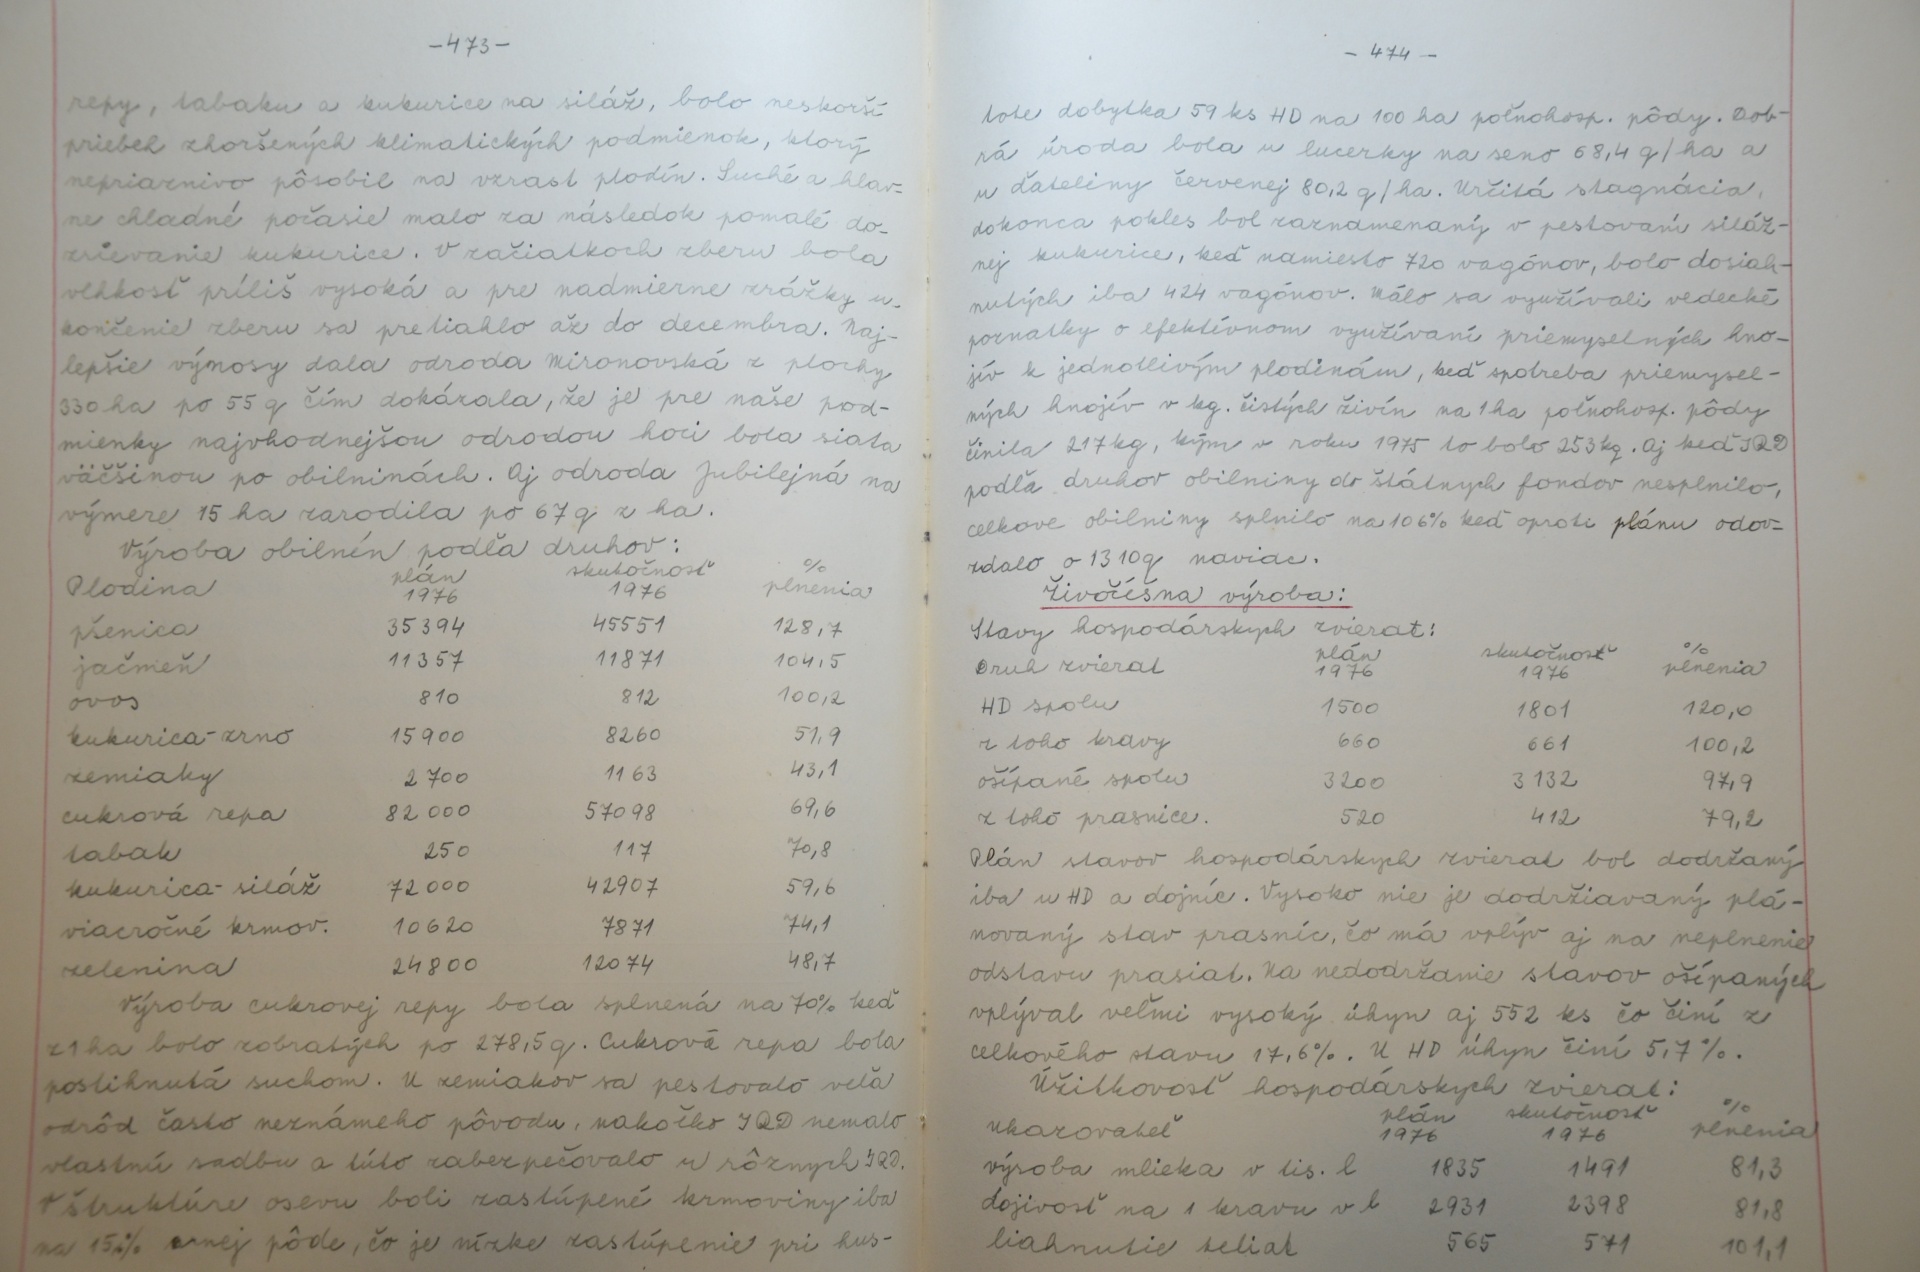 -473-
repy, tabaku a kukurice na siláž, bolo neskorší
priebeh zhoršených klimatických podmienok, ktorý
nepriaznivo pôsobil na vzrast plodín. Suché a hlav-
ne chladné počasie malo za následok pomalé do-
zrievanie kukurice. V začiatkoch zberu bola
vlhkosť príliš vysoká a pre nadmierne zrážky u-
končenie zberu sa pretiahlo až do decembra. Naj-
lepšie výnosy dala odroda Mironovská z plochy
330 ha po 55 q čím dokázala, že je pre naše pod-
mienky najvhodnejšou odrodou hoci bola siata
väčšinou po obilninách. Aj odroda Jubilejná na
výmere 15 ha zarodila po 67 q z ha.
Výroba obilnín podľa druhov:
Plodina plán 1976 skutočnosť 1976 % plnenia
pšenica 35394 45551 128,7
jačmeň 11357 11871 104,5
ovos 810 812 100,2
kukurica-zrno 15900 8260 51,9
zemiaky 2700 1163 43,1
cukrová repa 82000 57098 69,6
tabak 250 117 70,8
kukurica-siláž 72000 42907 59,6
viacročné krmov. 10620 7871 74,1
zelenina 24800 12074 48,7
Výroba cukrovej repy bola splnená na 70% keď
z 1 ha bolo zobratých po 278,5 q. Cukrová repa bola
postihnutá suchom. U zemiakov sa pestovaló veľa
odrôd často neznámeho pôvodu, nakoľko JRD nemalo
vlastnú sadbu a túto zabezpečovalo u rôznych JRD.
V štruktúre osevu boli zastúpené krmoviny iba
na 15% ornej pôde, čo je nízke zastúpenie pri hus-
- 474 -
tote dobytka 59 ks HD na 100 ha poľnohosp. pôdy. Dob-
rá úroda bola u lucerky na seno 68,4 q/ha a
u ďateliny červenej 80,2 q/ha. Určitá stagnácia,
dokonca pokles bol zaznamenaný v pestovaní siláž-
nej kukurice, keď namiesto 720 vagónov, bolo dosiah-
nutých iba 424 vagónov. Málo sa využívali vedecké
poznatky o efektívnom využívaní priemyselných hno-
jív k jednotlivým plodinám, keď spotreba priemysel-
ných hnojív v kg. čistých živín na 1 ha poľnohosp. pôdy
činila 217 kg, kým v roku 1975 to bolo 253 kg. Aj keď JRD
podľa druhov obilniny do štátnych fondov nesplnilo,
celkove obilniny splnilo na 106% keď oproti plánu odov-
zdalo o 1310 q naviac.
Živočíšna výroba:
Stavy hospodárskych zvierat:
Druh zvierat plán 1976 skutočnosť 1976 % plnenia
HD spolu 1500 1801 120,0
z toho kravy 660 661 100,2
ošípané spolu 3200 3132 97,9
z toho prasnice. 520 412 79,2
Plán stavov hospodárskych zvierat bol dodržaný
iba u HD a dojníc. Vysoko nie je dodržiavaný plá-
novaný stav prasníc, čo má vplýv aj na neplnenie
odstavu prasiat. Na nedodržanie stavov ošípaných
vplýval veľmi vysoký úhyn aj 552 ks čo činí z
celkového stavu 17,6%. U HD úhyn činí 5,7%.
Úžitkovosť hospodárskych zvierat:
Ukazovateľ plán 1976 skutočnosť 1976 % plnenia
výroba mlieka v tis. l 1835 1491 81,3
dojivosť na 1 kravu v l 2931 2398 81,8
liahnutie teliat 565 571 101,1